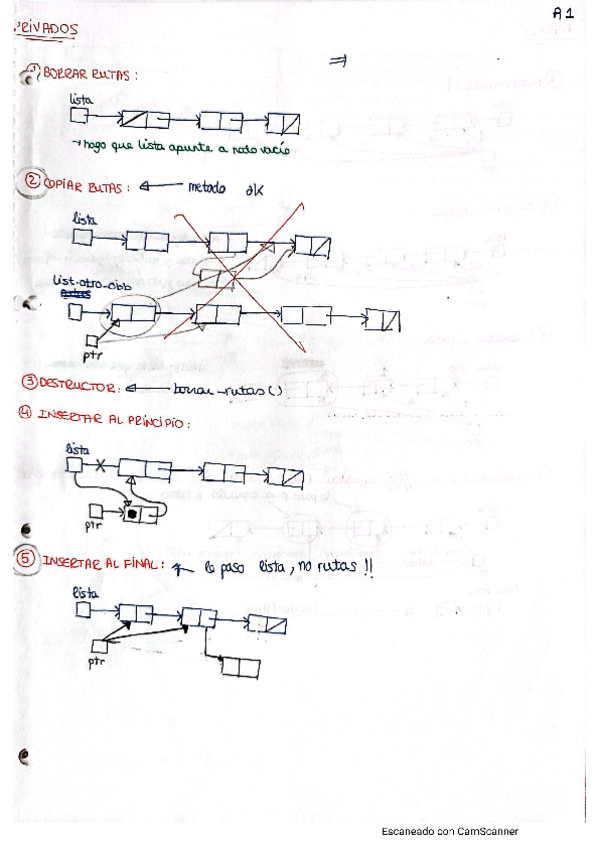 A1
PRIVADOS
⇒
① BORRAR RUTAS:
lista
→ hago que lista apunte a nodo vacío
② COPIAR RUTAS: ← metodo ok
lista
list-otro-obb
ptr
③ DESTRUCTOR: ← borrar-rutas()
④ INSERTAR AL PRINCIPIO:
lista
ptr
⑤ INSERTAR AL FINAL: ← le paso lista, no rutas!!
lista
ptr
Escaneado con CamScanner